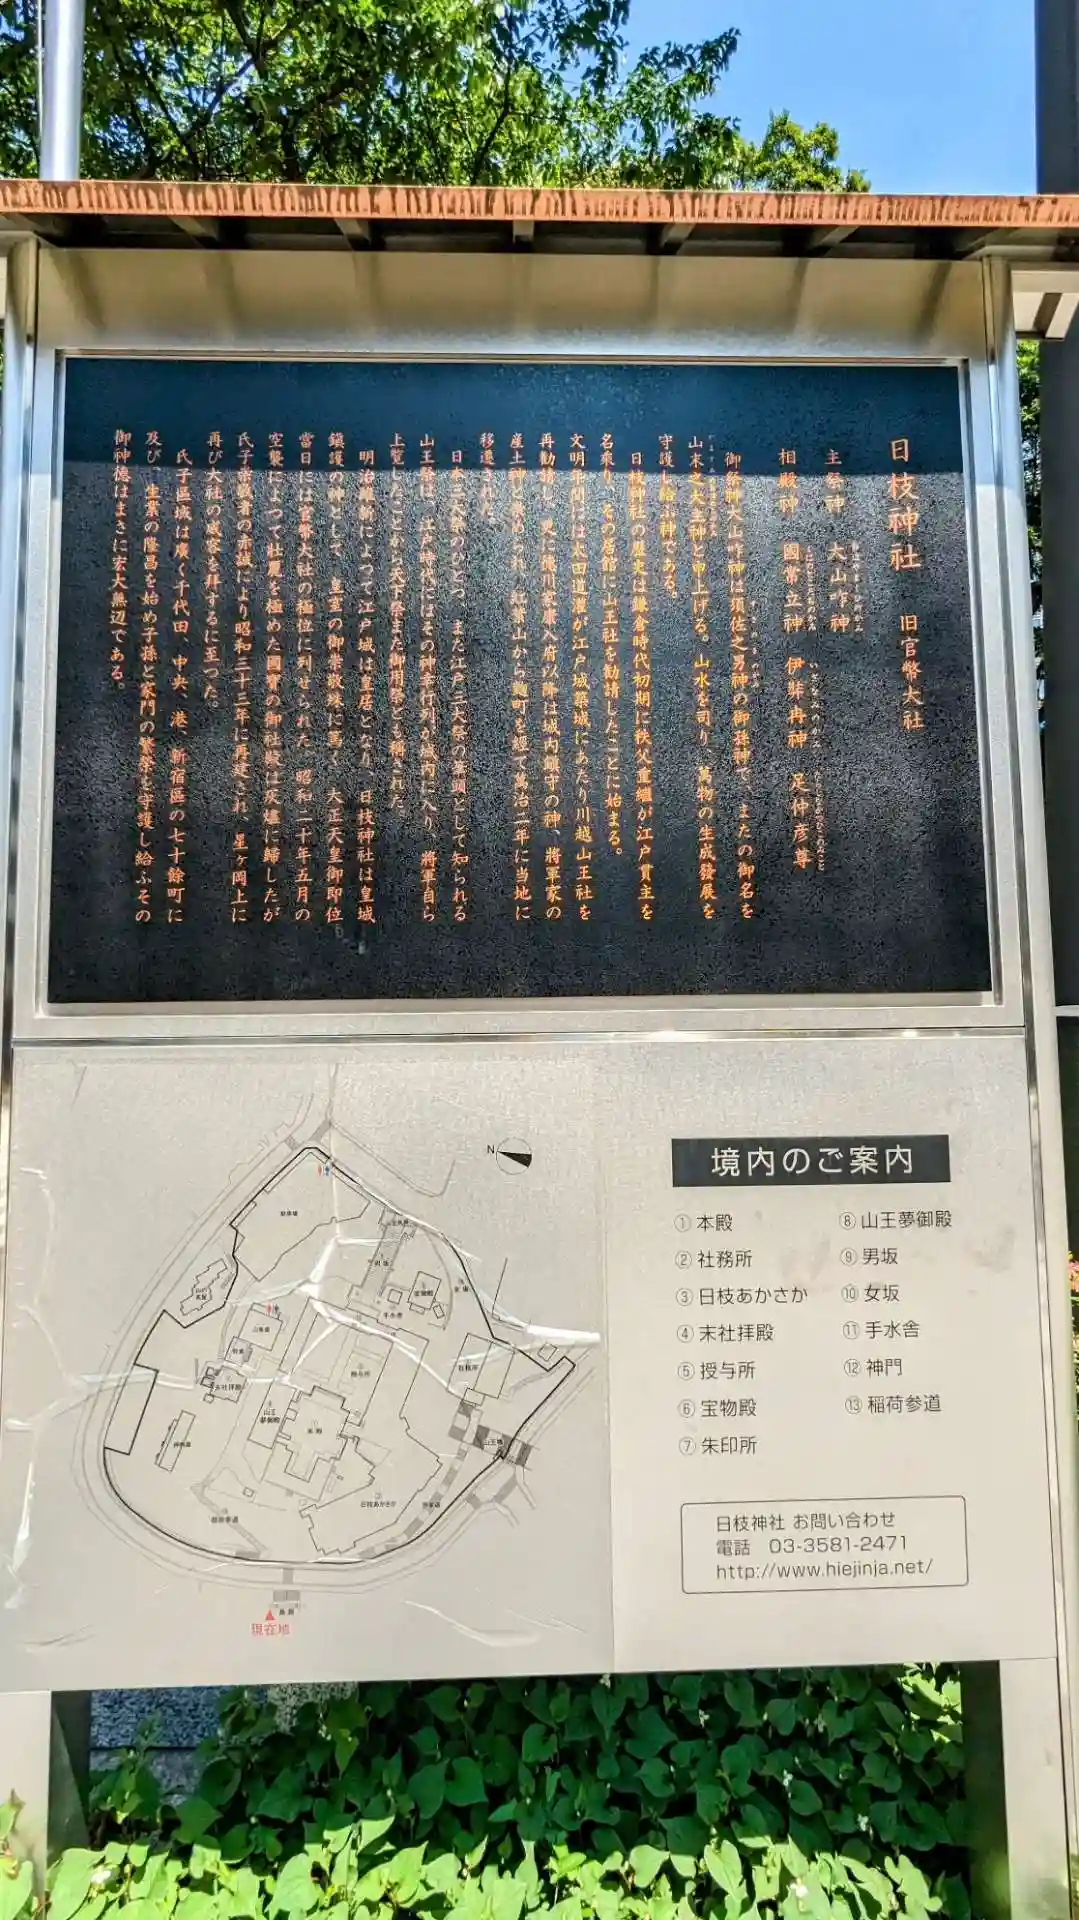 日枝神社 旧官幣大社
主祭神 大山咋神
相殿神 國常立神 伊弉冉神 足仲彦尊
御祭神大山咋神は須佐之男神の御孫神で、またの御名を
山末之大主神と申上げる。山水を司り、萬物の生成發展を
守護し給ふ神である。
日枝神社の歴史は鎌倉時代初期に秩父重繼が江戸貫主を
名乗り、その居館に山王社を勧請したことに始まる。
文明年間には太田道灌が江戸城築城にあたり川越山王社を
再勧請し、更に徳川家康入府以降は城内鎮守の神、將軍家の
産土神と崇められ、紅葉山から麹町を經て萬治二年に当地に
移遷された。
日本三大祭のひとつ、また江戸三大祭の筆頭として知られる
山王祭は、江戸時代にはその神幸行列が城内に入り、將軍自ら
上覧したことから天下祭また御用祭とも稱された。
明治維新によつて江戸城は皇居となり、日枝神社は皇城
鎮護の神として、皇室の御崇敬殊に篤く、大正天皇御即位
当日には官幣大社の極位に列せられた。昭和二十年五月の
空襲によつて壮麗を極めた國寶の御社殿は灰燼に歸したが
氏子崇敬者の赤誠により昭和三十三年に再建され、星ヶ岡上に
再び大社の威容を拜するに至つた。
氏子區域は廣く千代田、中央、港、新宿區の七十餘町に
及び、生業の隆昌を始め子孫と家門の繁榮を守護し給ふその
御神徳はまさに宏大無辺である。
N
宝物殿
手水舎
社務所
授与所
末社拝殿
山王
夢御殿
本殿
日枝あかさか
山王橋
稲荷参道
鳥居
現在地
境内のご案内
①本殿
②社務所
③日枝あかさか
④末社拝殿
⑤授与所
⑥宝物殿
⑦朱印所
⑧山王夢御殿
⑨男坂
⑩女坂
⑪手水舎
⑫神門
⑬稲荷参道
日枝神社 お問い合わせ
電話 03-3581-2471
http://www.hiejinja.net/